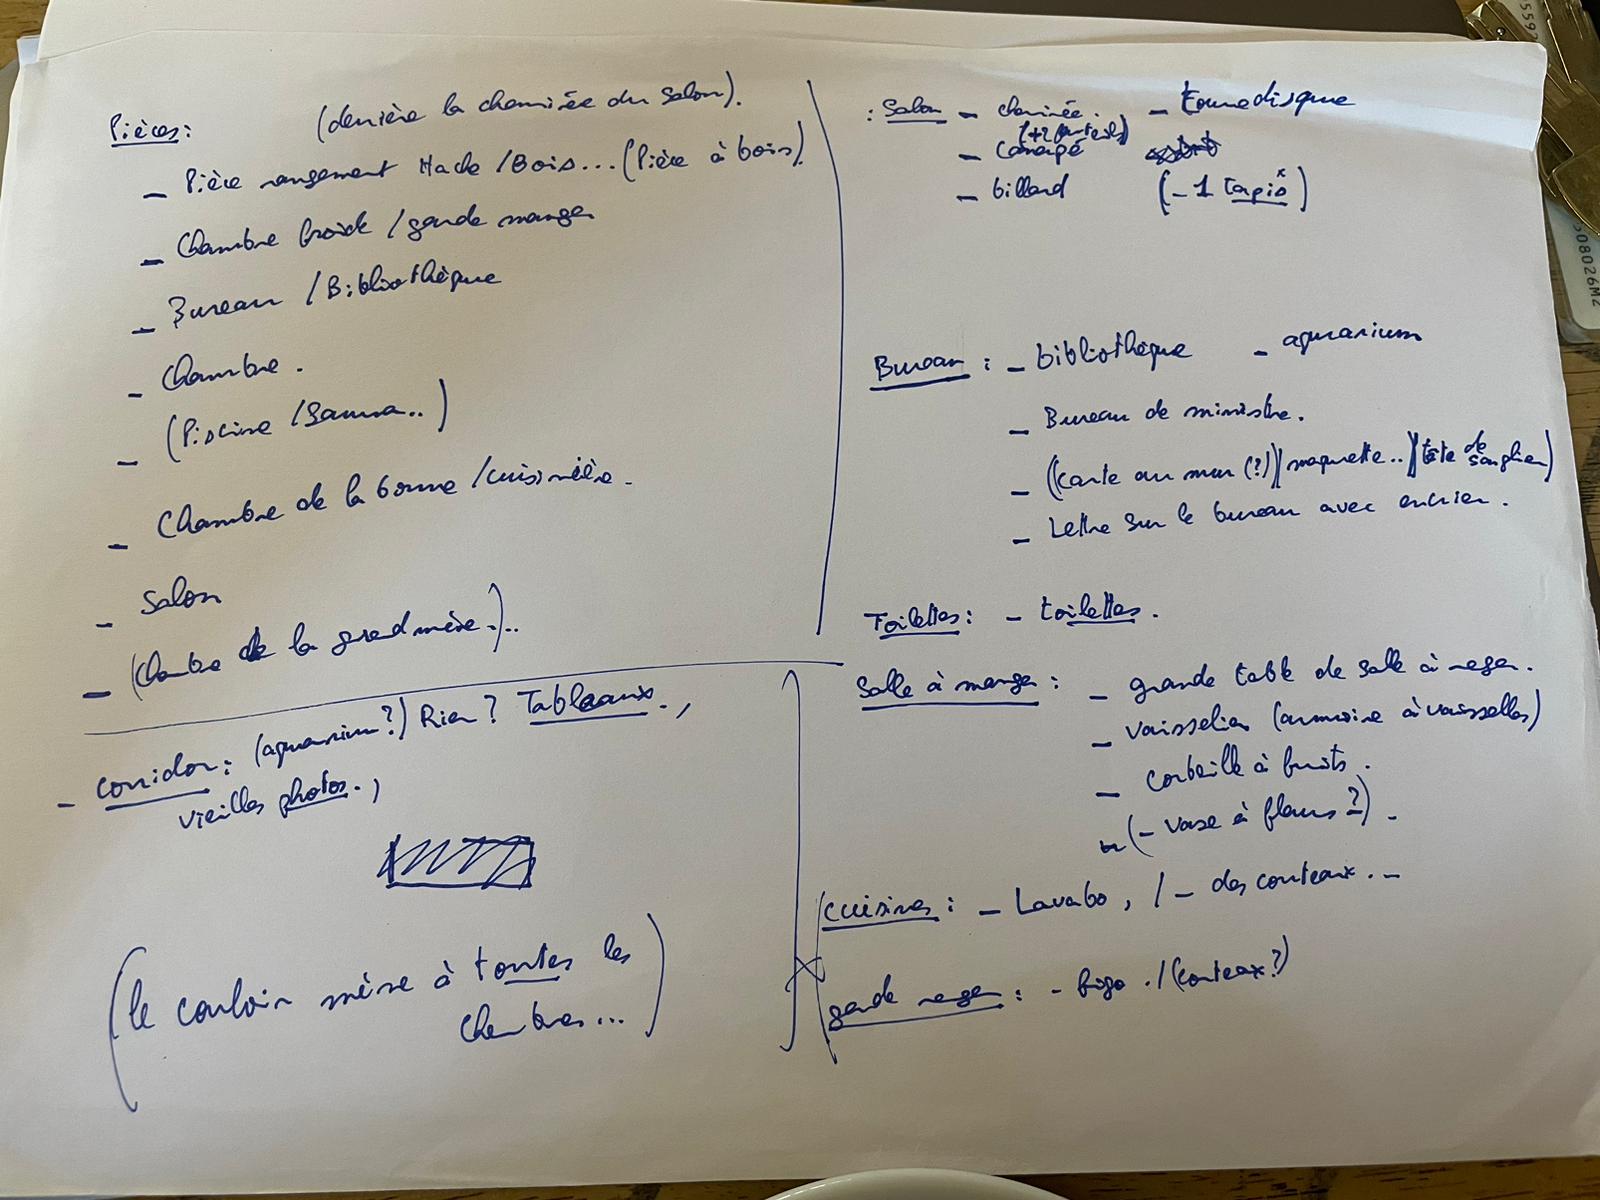 Pièces:
(derrière la cheminée du salon).
- Pièce rangement Hache /Bois...(Pièce à bois)
- Chambre froide /garde manger
- Bureau /Bibliothèque
- Chambre.
- (Piscine /Sauna..)
- Chambre de la bonne /cuisinière.
- Salon
- (Chambre de la grand mère.)..
- corridor: (aquarium?) Rien? Tableaux.,
vieilles photos.,
(le couloir mène à toutes les
chambres...)
: Salon - cheminée. - tournedisque
(+2 fauteuils)
- Canapé
- billard (- 1 tapis)
Bureau: - bibliothèque - aquarium
- Bureau de ministre.
- (carte au mur (?)/maquette..)(tête de sanglier)
- Lettre sur le bureau avec encrier.
Toilettes: - toilettes.
Salle à manger: - grande table de salle à manger.
- vaisselier (armoire à vaisselles)
- corbeille à fruits.
(- vase à fleurs?).
cuisines: - Lavabo, / - des couteaux. -
garde manger: - frigo. /(couteaux?)